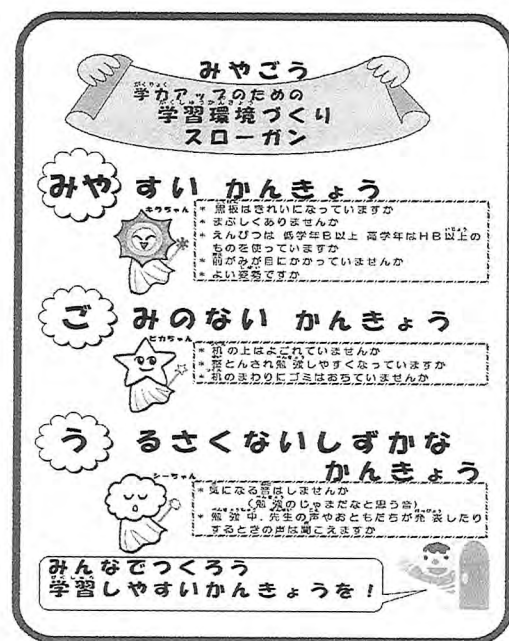 みやごう
がくりょく
学力アップのための
がくしゅうかんきょう
学習環境づくり
スローガン
みや すい かんきょう
キラちゃん
* 黒板はきれいになっていますか
* まぶしくありませんか
* えんぴつは 低学年B以上 高学年はHB以上の
ものを使っていますか
* 前がみが目にかかっていませんか
* よい姿勢ですか
ご みのない かんきょう
ピカちゃん
* 机の上はよごれていませんか
* 整とんされ勉強しやすくなっていますか
* 机のまわりにゴミはおちていませんか
う るさくないしずかな
かんきょう
シーちゃん
* 気になる音はしませんか
(勉強のじゃまだなと思う音)
* 勉強中、先生の声やおともだちが発表したり
するときの声は聞こえますか
みんなでつくろう
学習しやすいかんきょうを!